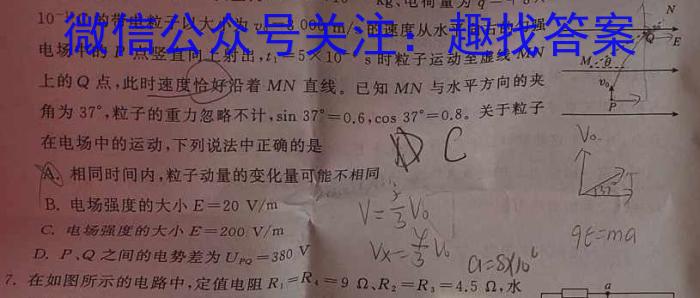 kg、电荷量为 q
的带电粒子以大小为 8 000 m/ 的速度从水平
微信公众号关注：趣找答案
电场中的 P 点竖直向上射出，t₁=5×10 s 时粒子运动至虚线 MN
上的 Q 点，此时速度恰好沿着 MN 直线。已知 MN 与水平方向的夹
角为 37°，粒子的重力忽略不计，sin 37°=0.6，cos 37°=0.8。关于粒子
在电场中的运动，下列说法中正确的是
D C
A. 相同时间内，粒子动量的变化量可能不相同
B. 电场强度的大小 E=20 V/m
C. 电场强度的大小 E=200 V/m
D. P、Q 之间的电势差为 U_PQ=380 V
7. 在如图所示的电路中，定值电阻 R₁=R₄=9 Ω、R₂=R₃=4.5 Ω，水
N
Q
E
M
θ
v₀
P
V₀
37°
V=5/3 V₀
Vx=4/3 V₀
qE=ma
a